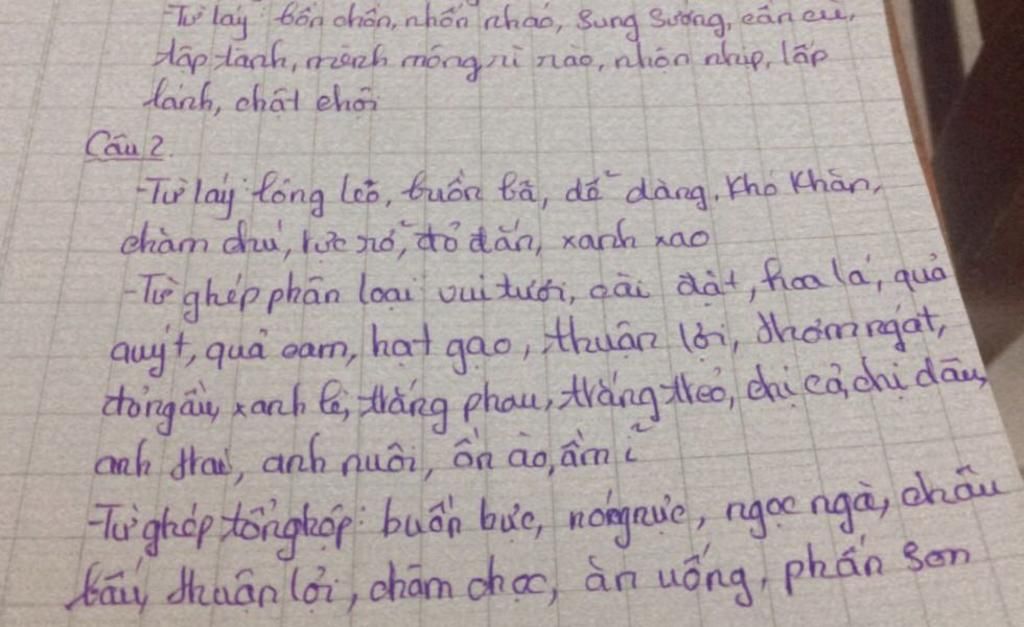 -Từ láy: bồn chồn, nhốn nháo, sung sướng, cần cù,
tấp tành, mênh mông rì rào, nhộn nhịp, lấp
lánh, chật chội
Câu 2.
-Từ láy lóng leỏ, buồn bã, dễ dàng, khó khăn,
chăm chú, rực rỡ, đỏ đắn, xanh xao
-Từ ghép phân loại vui tươi, cài đặt, hoa lá, quả
quýt, quả cam, hạt gạo, thuận lợi, thơm ngát,
đỏ ngầu, xanh lè, trắng phau, trắng trẻo, chị cả, chị dâu,
anh trai, anh nuôi, ồn ào, ầm ĩ
-Từ ghép tổng hợp: buồn bực, nóng nực, ngọc ngà, châu
báu, thuận lợi, chăm chọc, ăn uống, phấn son